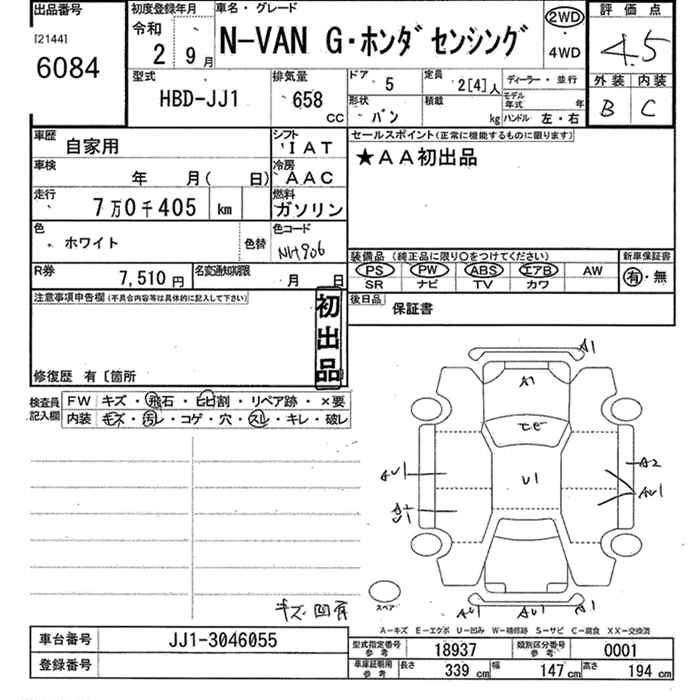 出品番号
[2144]
6084
初度登録年月
令和
2 9月
車名・グレード
N-VAN G・ホンダセンシング
2WD
・
4WD
評価点
4.5
外装 内装
B C
型式
HBD-JJ1
排気量
658
CC
ドア 5
定員 2[4]人
形状 バン
積載 kg
ディーラー・並行
モデル年式 年
ハンドル 左・右
車歴 自家用
シフト IAT
車検 年 月( 日)
冷房 AAC
走行 7万0千405 km
燃料 ガソリン
色 ホワイト
色替
色コード NH906
R券 7,510円
名変通知期限 月 日
セールスポイント(正常に機能するものに限ります)
★AA初出品
装備品(純正品に限り○をつけてください)
新車保証書
PS PW ABS エアB AW
SR ナビ TV カワ
有・無
後日品
保証書
注意事項申告欄(不具合内容等は具体的に記入して下さい)
初出品
修復歴 有〔箇所
検査員記入欄
FW キズ・飛石・ヒビ割・リペア跡・×要
内装 キズ・汚レ・コゲ・穴・スレ・キレ・破レ
キズ 凹有
A1
A1
ヒビ
U1
AU1
A2
U1
A2
AU1
スペア
AU1 AU1 A1
A-キズ E-エクボ U-凹み W-補修跡 S-サビ C-腐食 XX-交換済
車台番号 JJ1-3046055
登録番号
型式指定番号参考 18937
類別区分番号参考 0001
車庫証明用参考
長さ 339 cm
幅 147 cm
高さ 194 cm